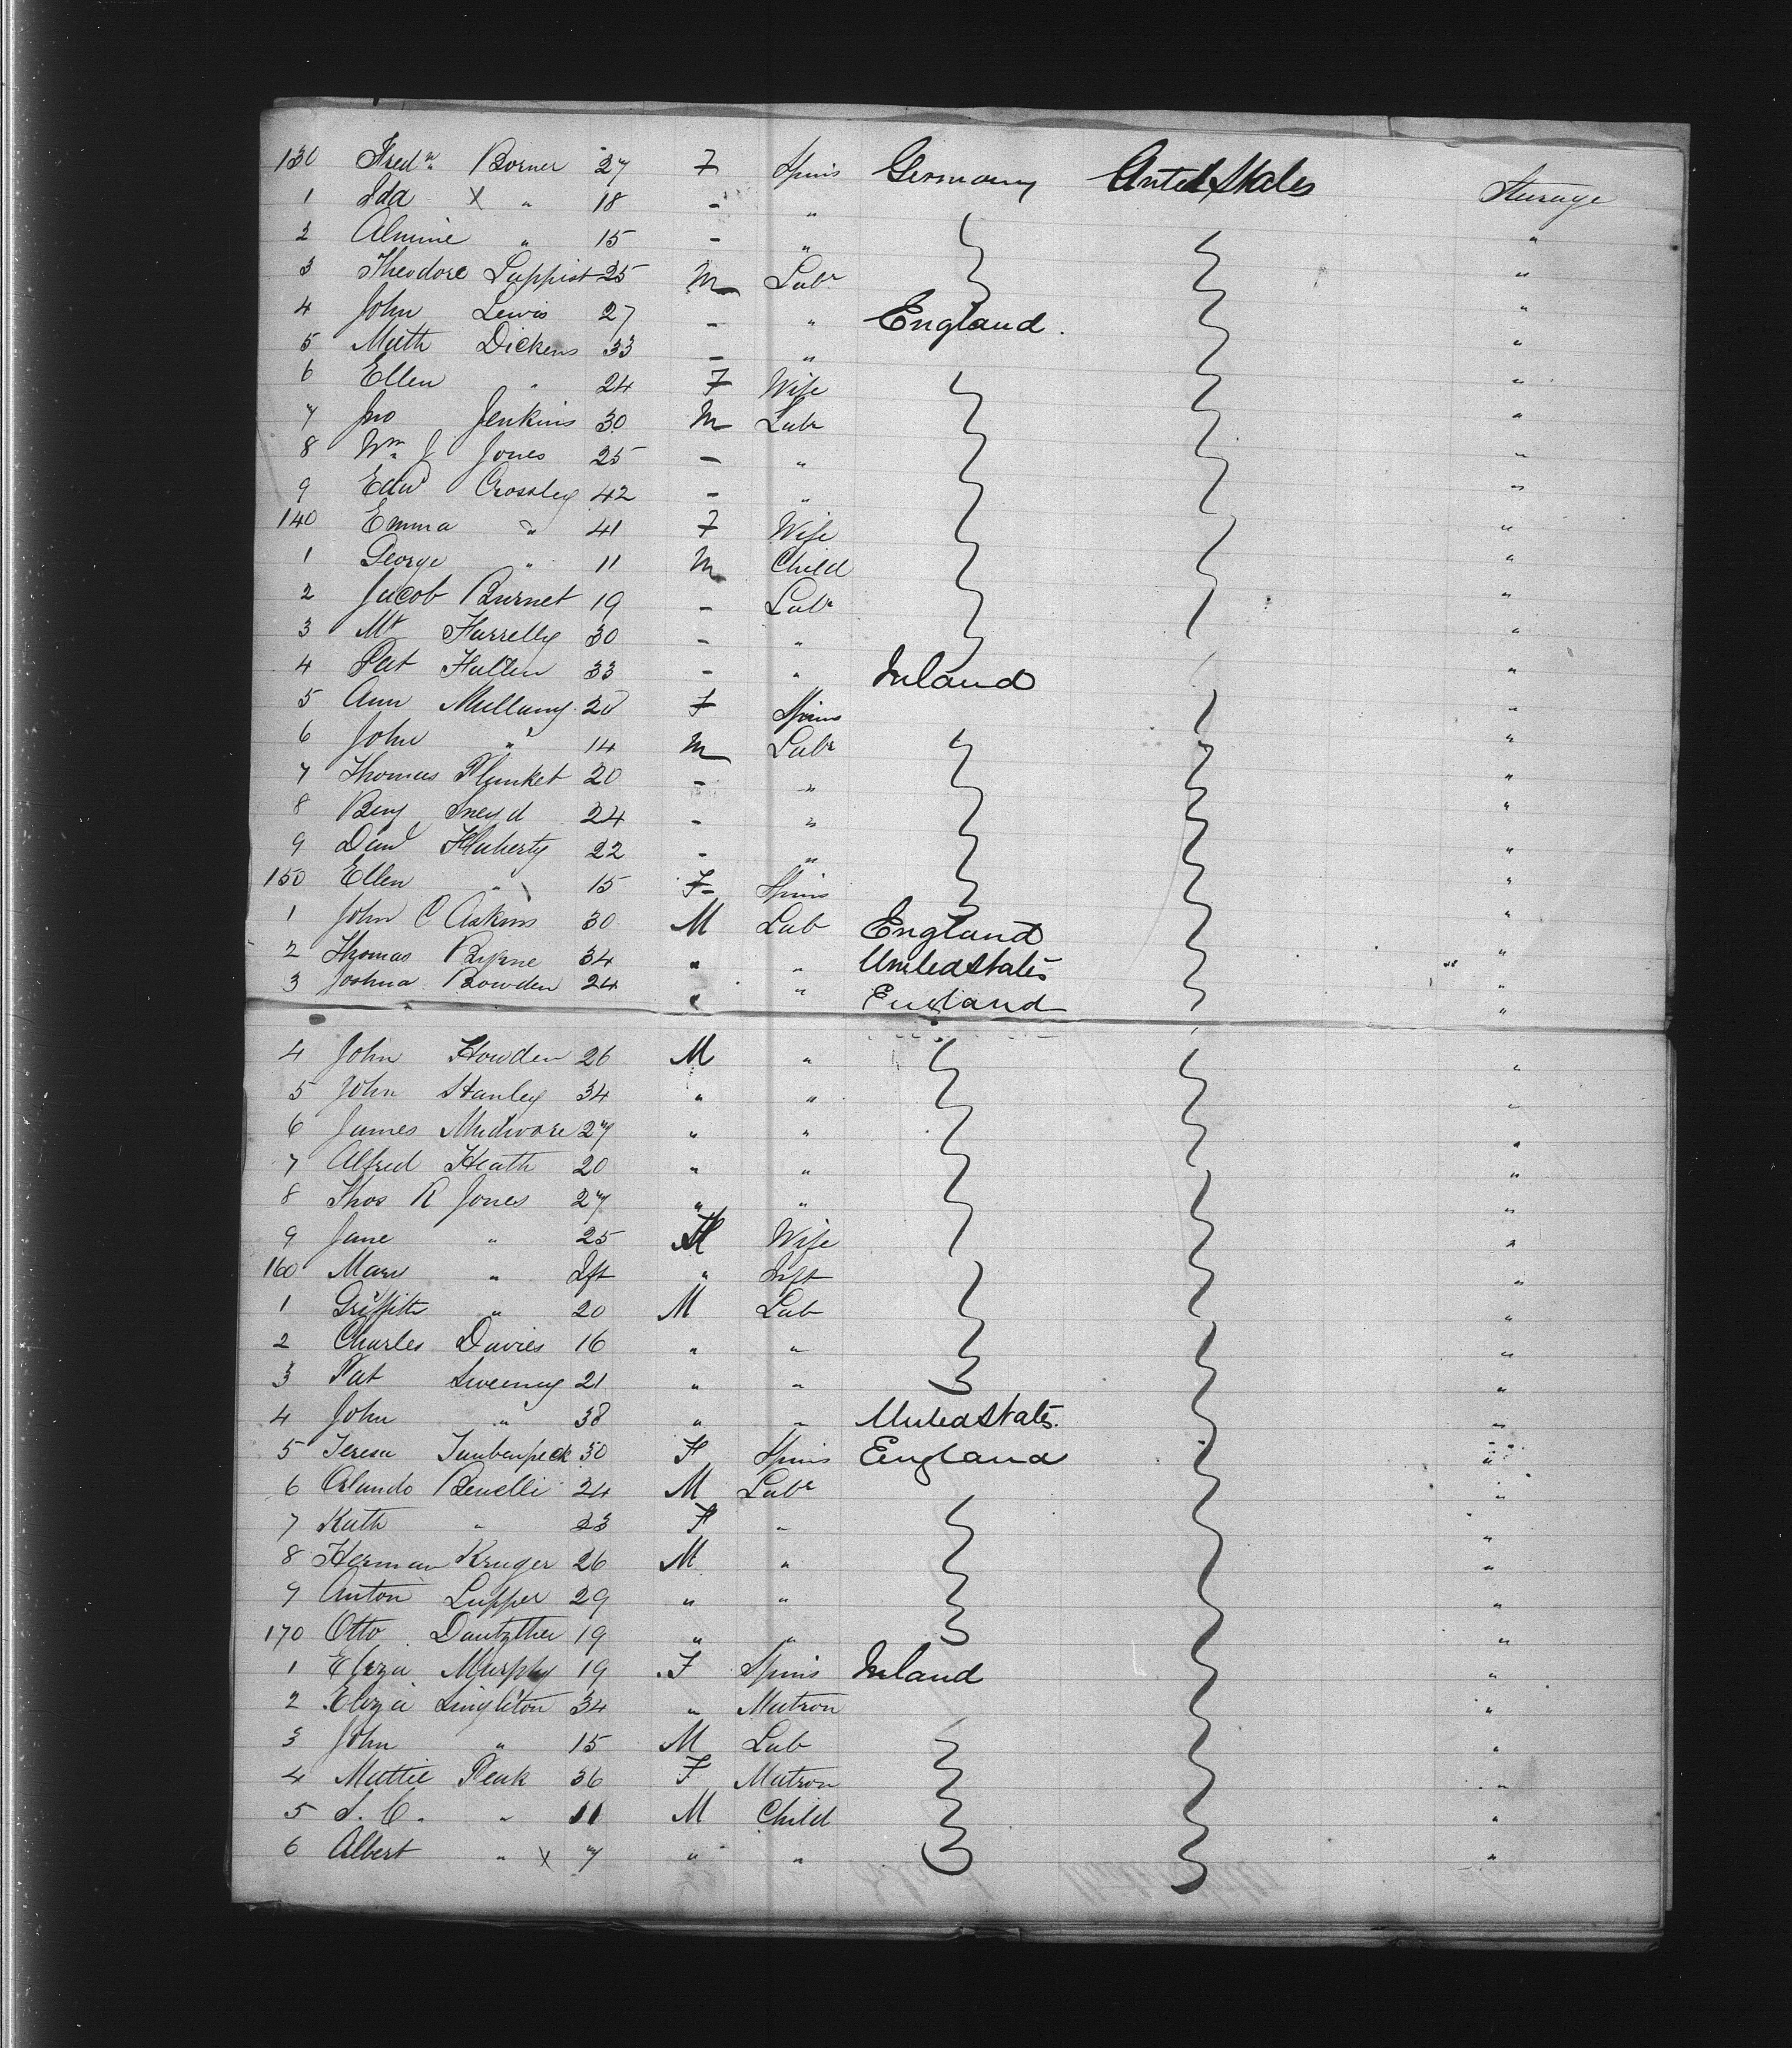 130 Fred Borner 27 F Spins Germany United States Steerage
1 Ida X " 18 - " "
2 Almine " 15 - " "
3 Theodore Lappist 25 M Labr "
4 John Lewis 27 - " England. "
5 Math Dickens 33 - " "
6 Ellen " 24 F Wife "
7 Jno Jenkins 30 M Labr "
8 Wm J Jones 25 - " "
9 Edwd Crossley 42 - " "
140 Emma " 41 F Wife "
1 George " 11 M Child "
2 Jacob Burnet 19 - Labr "
3 Mt Farrelly 30 - " "
4 Pat 33 - " Ireland "
5 Ann Mullany 20 F Spins "
6 John " 14 M Labr "
7 Thomas Plunket 20 - " "
8 Benj Sneyd 24 - " "
9 Danl Flaherty 22 - " "
150 Ellen " 15 F Spins "
1 John C Askins 30 M Lab England "
2 Thomas Byrne 34 " " United States "
3 Joshua Bowden 24 " " England "
4 John Howden 26 M " "
5 John Stanley 34 " " "
6 James Midwore 27 " " "
7 Alfred Heath 20 " " "
8 Thos R Jones 27 " " "
9 Jane " 25 F Wife "
160 Mary " Ift " Inft "
1 Griffith " 20 M Lab "
2 Charles Davies 16 " " "
3 Pat Sweeney 21 " " "
4 John " 38 " " United States. "
5 Teresa Taubenpeck 50 F Spins England "
6 Orlando Benelli 24 M Labr "
7 Kath " 23 F " "
8 Herman Kruger 26 M " "
9 Anton Lupper 29 " " "
170 Otto 19 " " "
1 Eliza Murphy 19 F Spins Ireland "
2 Eliza Singleton 34 " Matron "
3 John " 15 M Lab "
4 Mattie Peak 36 F Matron "
5 S. C. " 11 M Child "
6 Albert " X 7 " " "